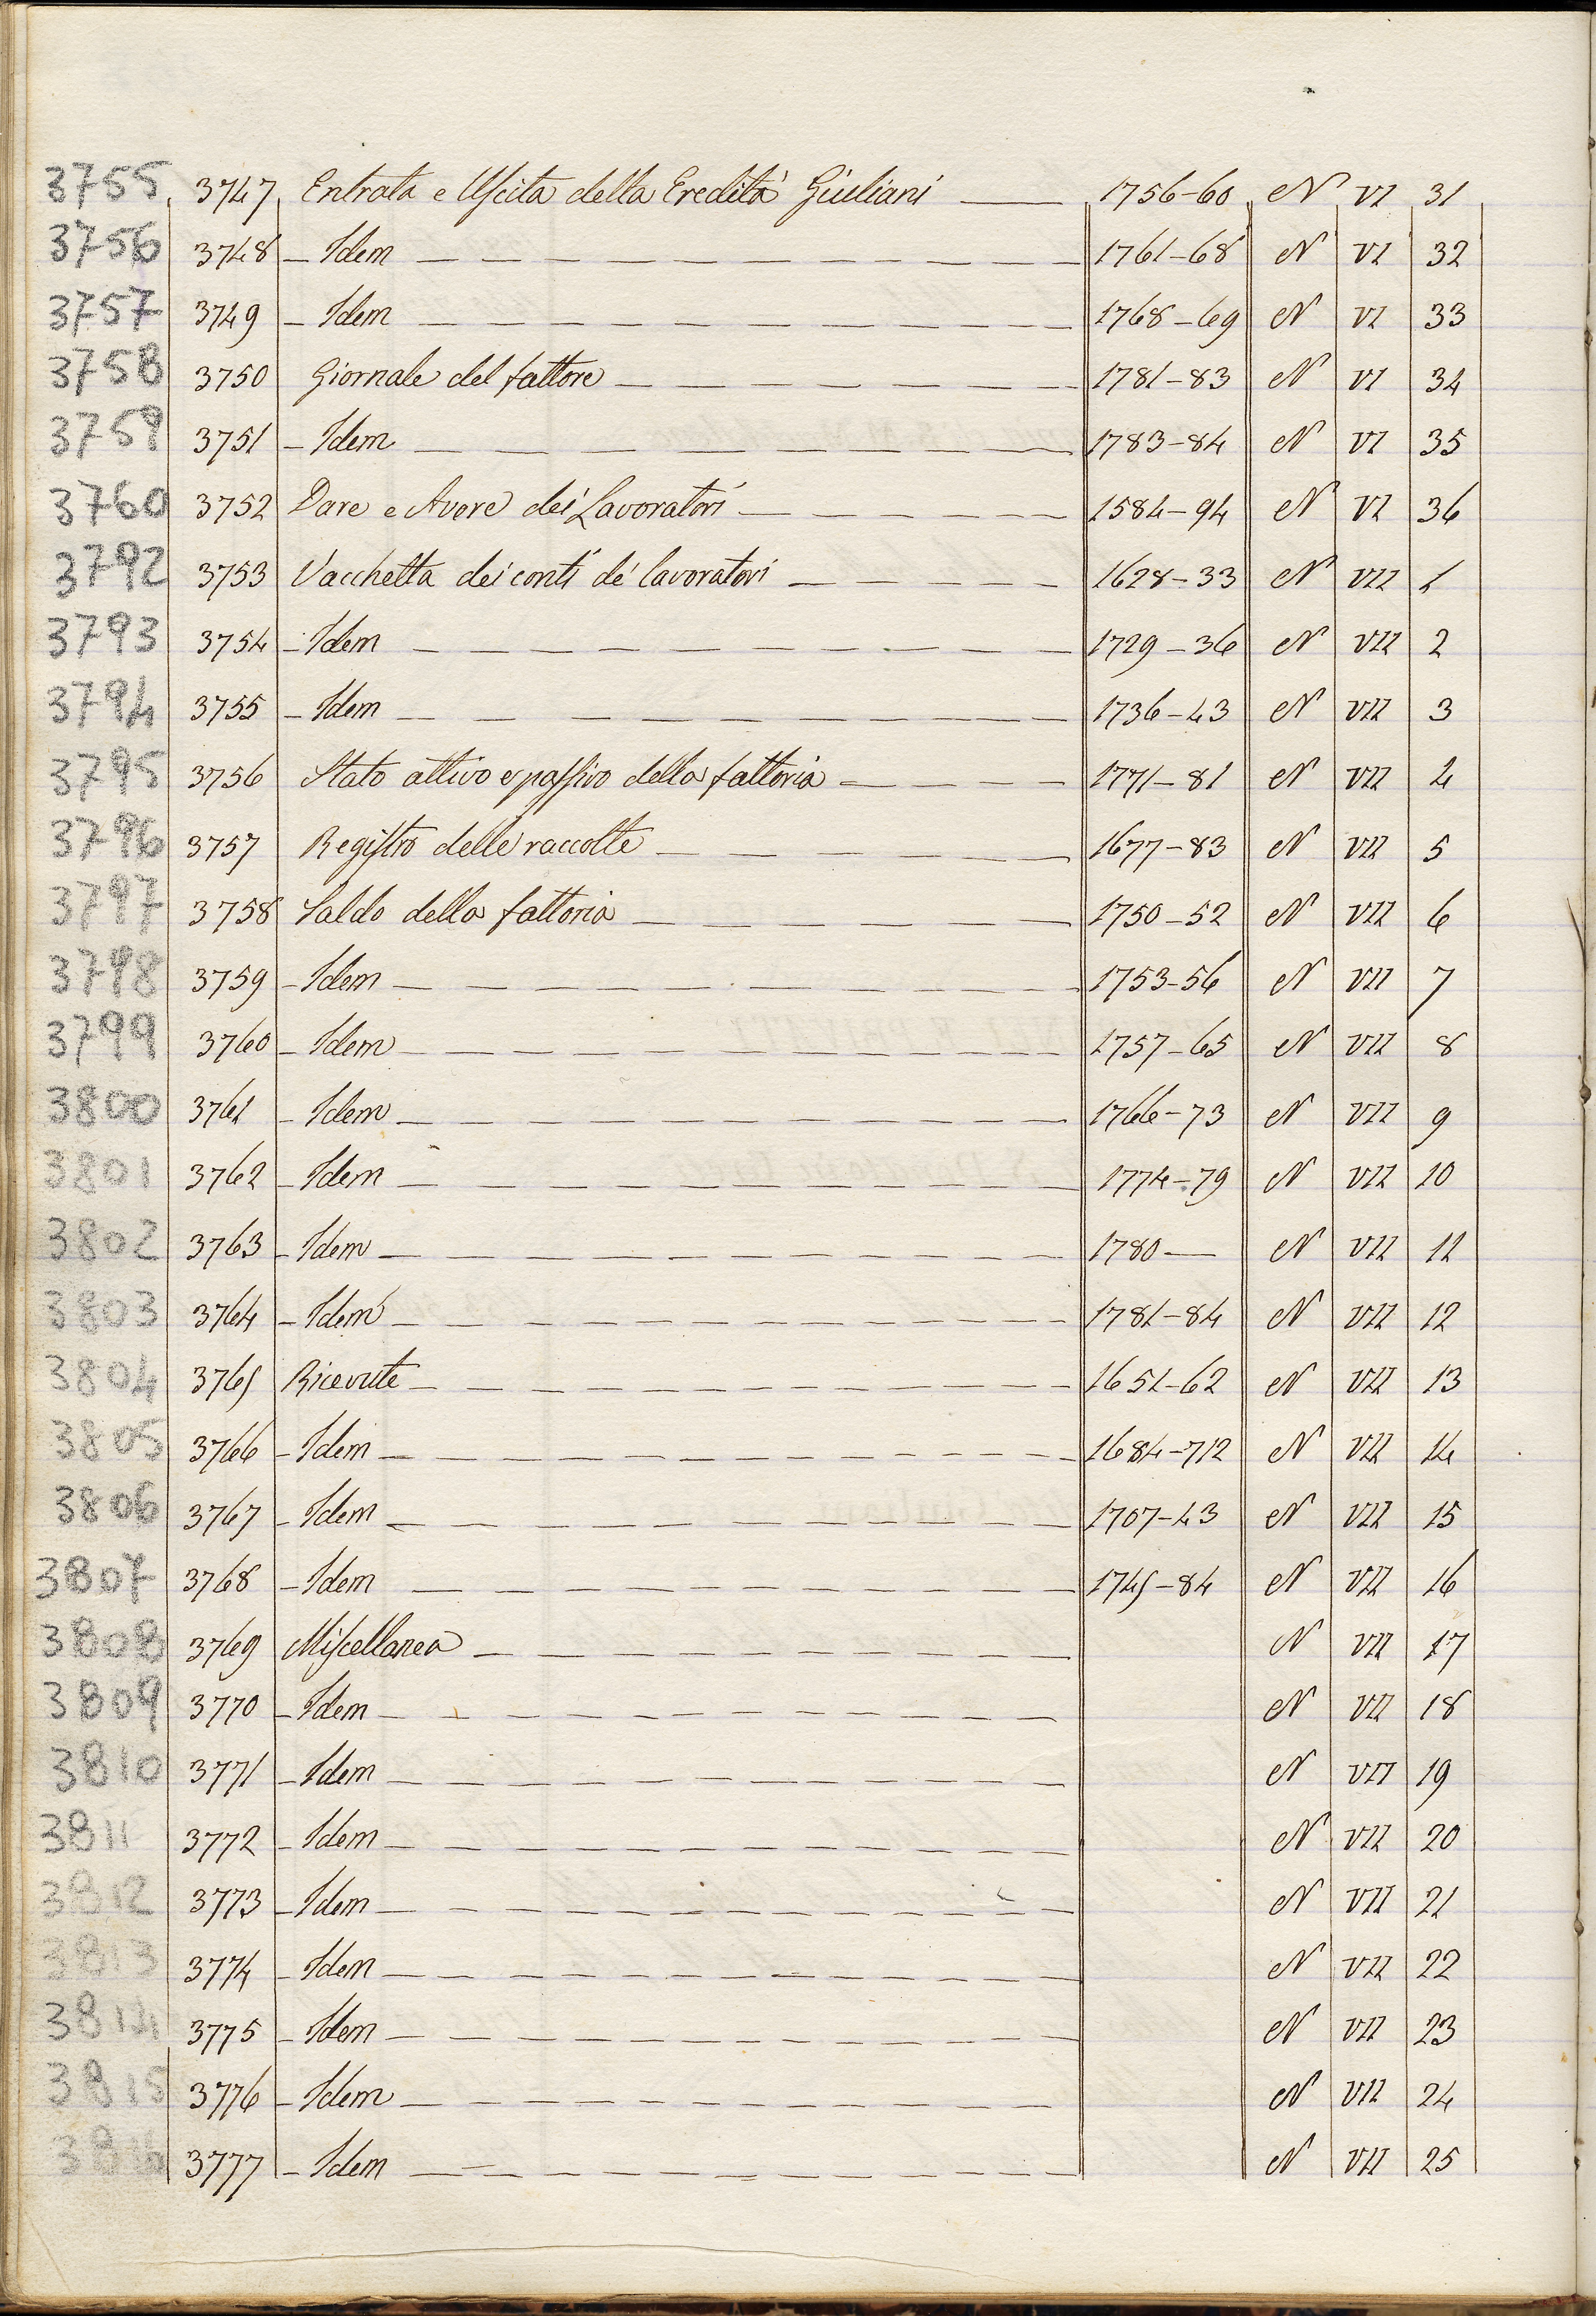 3755 3747 Entrata e Uscita della Eredità Giuliani 1756-60 N VI 31
3756 3748 – Idem 1761-68 N VI 32
3757 3749 – Idem 1768-69 N VI 33
3758 3750 Giornale del fattore 1781-83 N VI 34
3759 3751 – Idem 1783-84 N VI 35
3760 3752 Dare e Avere dei Lavoratori 1584-94 N VI 36
3792 3753 Vacchetta dei conti de' lavoratori 1628-33 N VII 1
3793 3754 – Idem 1729-36 N VII 2
3794 3755 – Idem 1736-43 N VII 3
3795 3756 Stato attivo e passivo della fattoria 1771-81 N VII 4
3796 3757 Registro delle raccolte 1677-83 N VII 5
3797 3758 Saldo della fattoria 1750-52 N VII 6
3798 3759 – Idem 1753-56 N VII 7
3799 3760 – Idem 1757-65 N VII 8
3800 3761 – Idem 1766-73 N VII 9
3801 3762 – Idem 1774-79 N VII 10
3802 3763 – Idem 1780 — N VII 11
3803 3764 – Idem 1781-84 N VII 12
3804 3765 Ricevute 1651-62 N VII 13
3805 3766 – Idem 1684-712 N VII 14
3806 3767 – Idem 1707-43 N VII 15
3807 3768 – Idem 1745-84 N VII 16
3808 3769 Miscellanea N VII 17
3809 3770 – Idem N VII 18
3810 3771 – Idem N VII 19
3811 3772 – Idem N VII 20
3812 3773 – Idem N VII 21
3813 3774 – Idem N VII 22
3814 3775 – Idem N VII 23
3815 3776 – Idem N VII 24
3816 3777 – Idem N VII 25